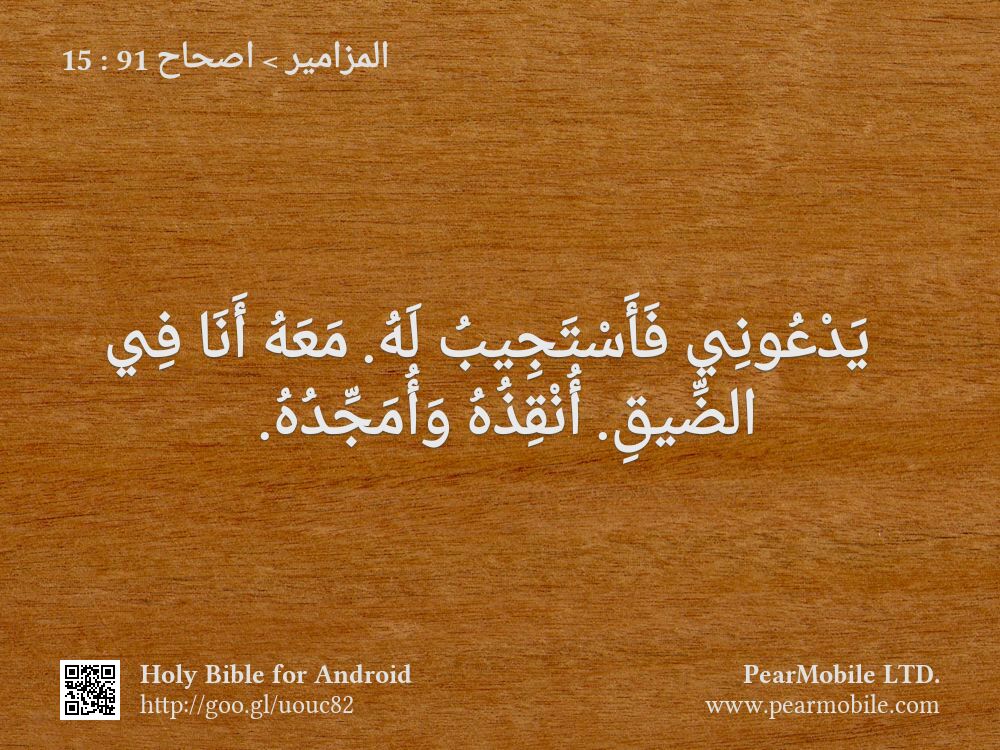 المزامير > اصحاح 91 : 15
يَدْعُونِي فَأَسْتَجِيبُ لَهُ. مَعَهُ أَنَا فِي
الضِّيقِ. أُنْقِذُهُ وَأُمَجِّدُهُ.
Holy Bible for Android
http://goo.gl/uouc82
PearMobile LTD.
www.pearmobile.com